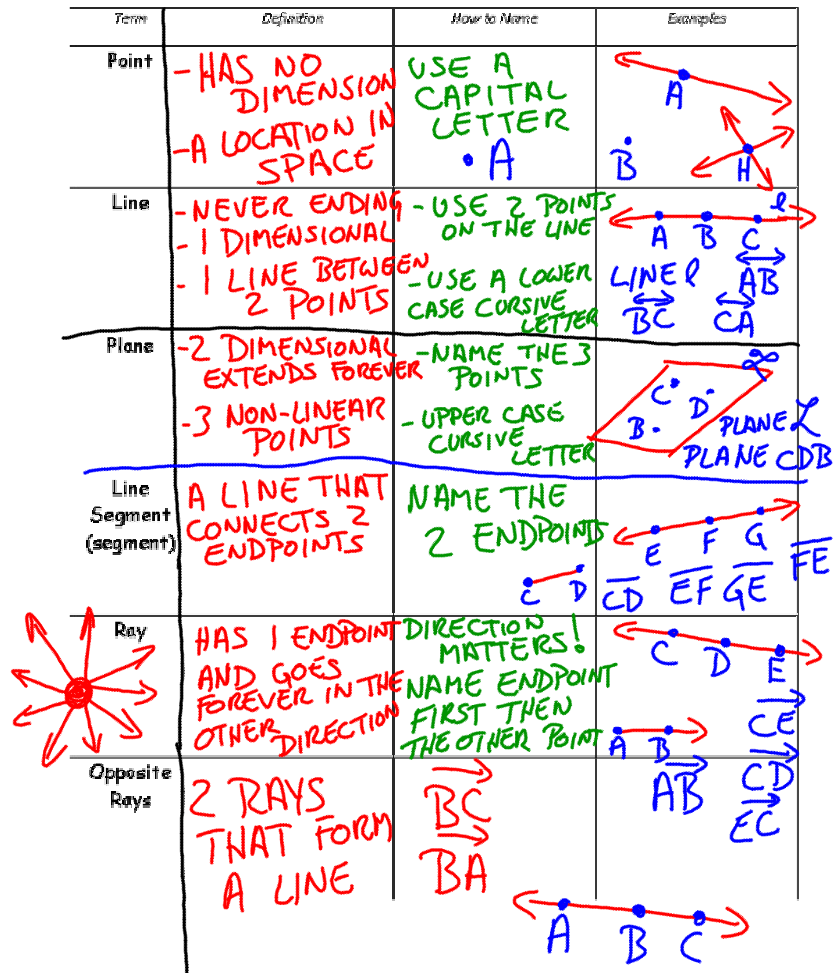 Term Definition How to Name Examples
Point
- HAS NO
DIMENSION
- A LOCATION IN
SPACE
USE A
CAPITAL
LETTER
• A
A
B
H
Line
- NEVER ENDING
- 1 DIMENSIONAL
- 1 LINE BETWEEN
2 POINTS
- USE 2 POINTS
ON THE LINE
- USE A LOWER
CASE CURSIVE
LETTER
ℓ
A B C
LINE ℓ AB
BC CA
Plane
- 2 DIMENSIONAL
EXTENDS FOREVER
- 3 NON-LINEAR
POINTS
- NAME THE 3
POINTS
- UPPER CASE
CURSIVE
LETTER
ℒ
C D
B
PLANE ℒ
PLANE CDB
Line
Segment
(segment)
A LINE THAT
CONNECTS 2
ENDPOINTS
NAME THE
2 ENDPOINTS
C D
E F G
CD EF GE FE
Ray
HAS 1 ENDPOINT
AND GOES
FOREVER IN THE
OTHER DIRECTION
DIRECTION
MATTERS!
NAME ENDPOINT
FIRST THEN
THE OTHER POINT
C D E
A B
CE
AB CD
EC
Opposite
Rays
2 RAYS
THAT FORM
A LINE
BC
BA
A B C